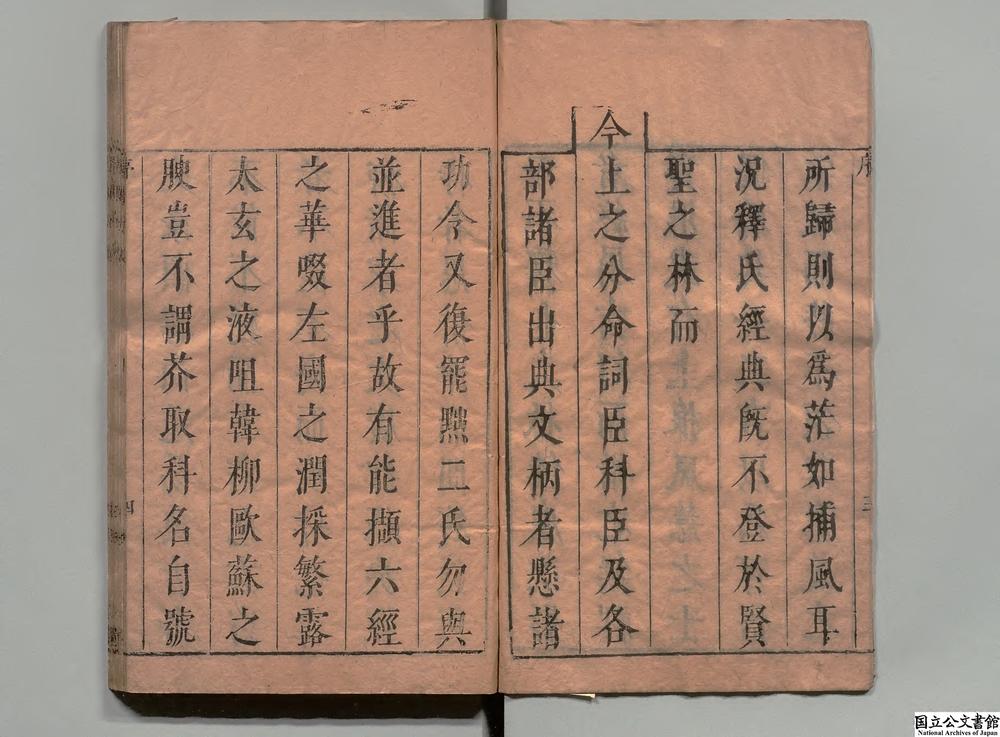 所歸則以爲茫如捕風耳
況釋氏經典旣不登於賢
聖之林而
今上之分命詞臣科臣及各
部諸臣出典文柄者懸諸
功令又復罷黜二氏勿與
並進者乎故有能擷六經
之華啜左國之潤採繁露
太玄之液咀韓柳歐蘇之
腴豈不謂芥取科名自號
国立公文書館
National Archives of Japan